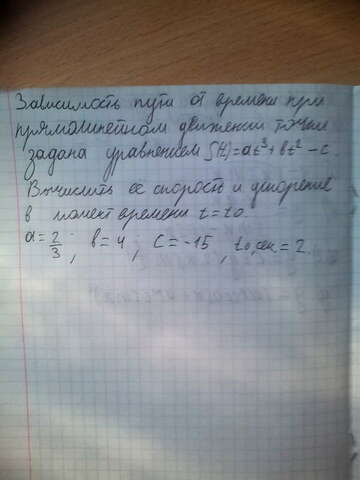 Зависимость пути от времени при
прямолинейном движении точки
задана уравнением S(t)=at³+bt²-c.
Вычислить её скорость и ускорение
в момент времени t=t₀.
a=2/3, b=4, c=-15, t₀,сек.=2.